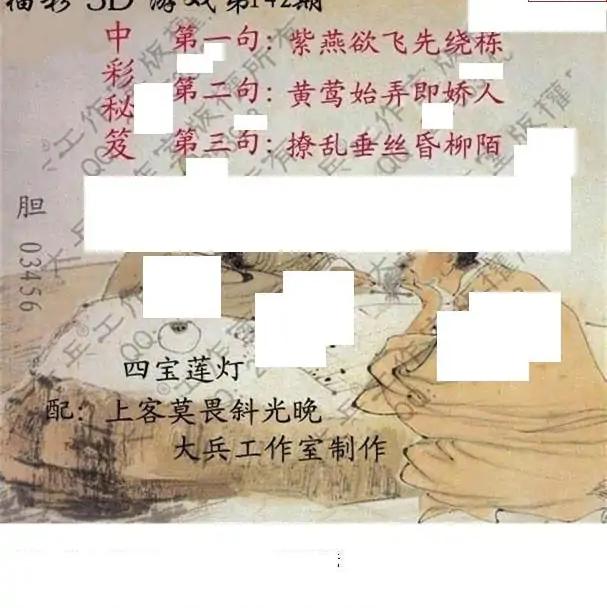 福彩 3D 游戏第142期
中彩秘笈
第一句：紫燕欲飞先绕栋
第二句：黄莺始弄即娇人
第三句：撩乱垂丝昏柳陌
胆 03456
四宝莲灯
配：上客莫畏斜光晚
大兵工作室制作